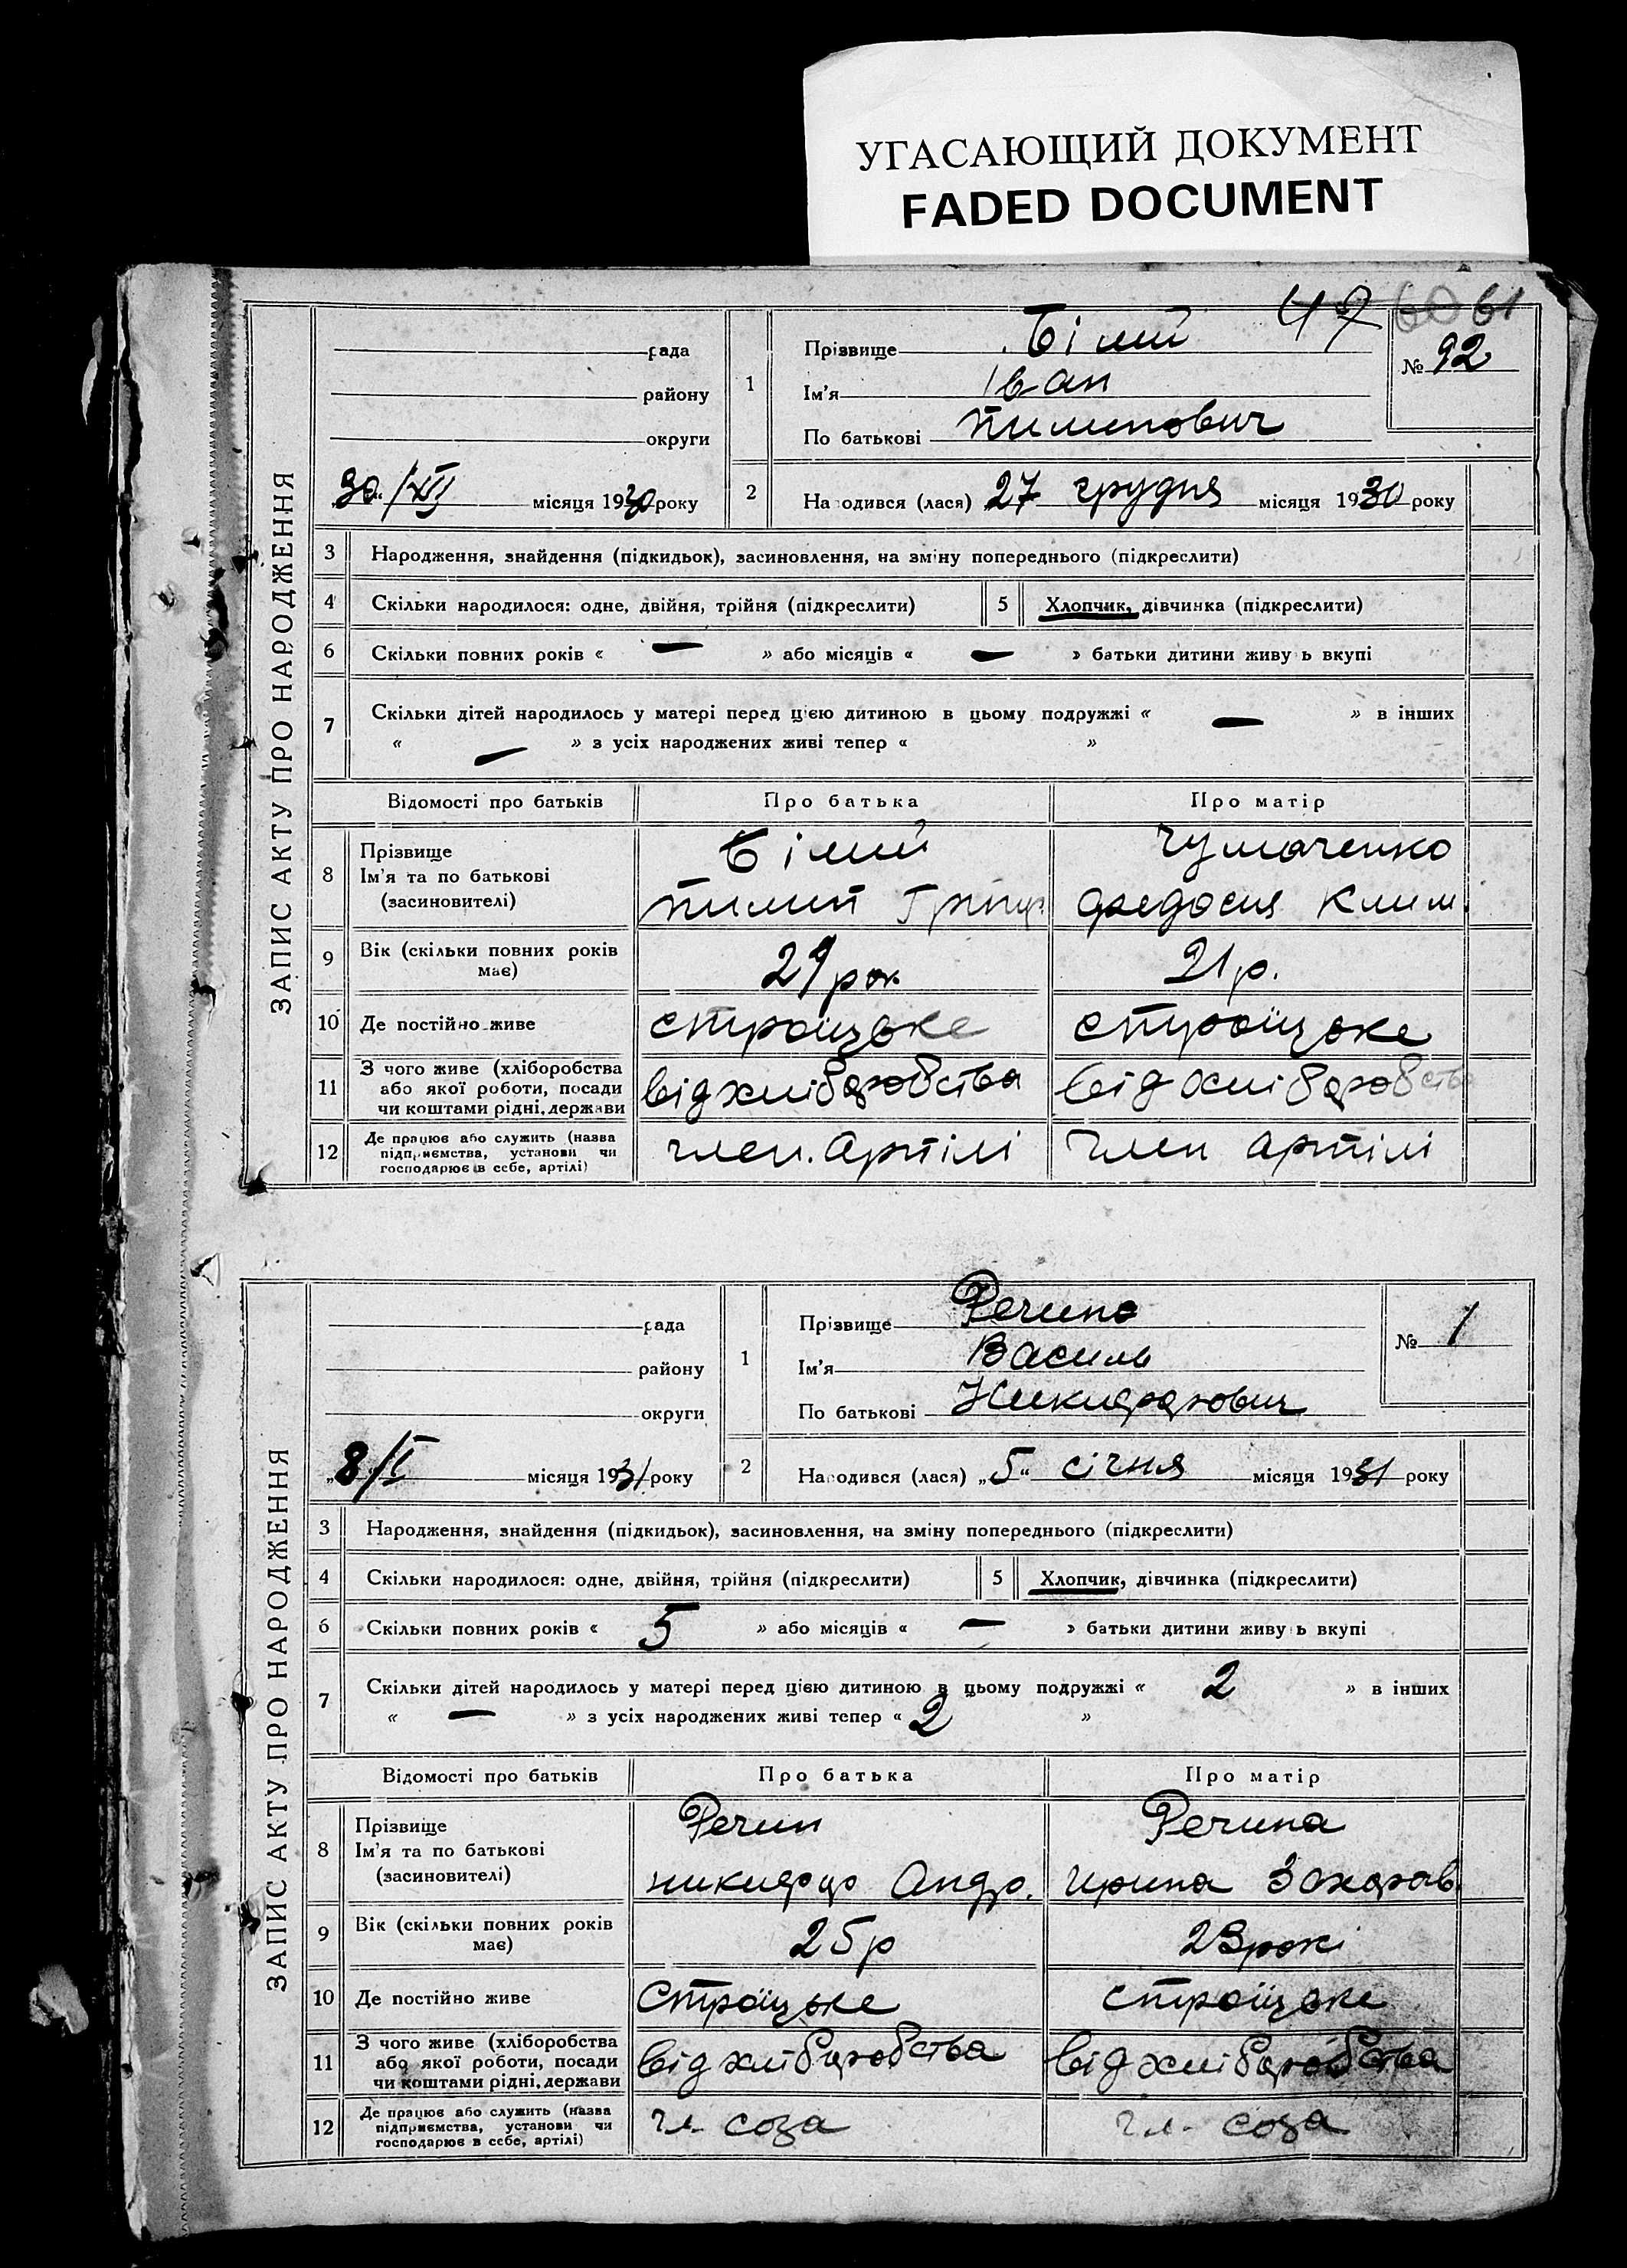 УГАСАЮЩИЙ ДОКУМЕНТ
FADED DOCUMENT
60 61
ЗАПИС АКТУ ПРО НАРОДЖЕННЯ
рада
району
округи
„30“ /XII місяця 1930 року
1 Прізвище Білий
Ім'я Іван
По батькові Пименович
№ 92
2 Народився (лася) 27 грудня місяця 1930 року
3 Народження, знайдення (підкидьок), засиновлення, на зміну попереднього (підкреслити)
4 Скільки народилося: одне, двійня, трійня (підкреслити) 5 Хлопчик, дівчинка (підкреслити)
6 Скільки повних років « — » або місяців « — » батьки дитини живуть вкупі
7 Скільки дітей народилось у матері перед цією дитиною в цьому подружжі « — » в інших
« — » з усіх народжених живі тепер « »
Відомості про батьків Про батька Про матір
8 Прізвище
Ім'я та по батькові
(засиновителі)
Білий
Пимин
Чумаченко
Федосия Клим.
9 Вік (скільки повних років
має)
29 рок
21 р.
10 Де постійно живе строїцьке строїцьке
11 З чого живе (хліборобства
або якої роботи, посади
чи коштами рідні, держави
від хліборобства від хліборобства
12 Де працює або служить (назва
підприємства, установи чи
господарює в себе, артілі)
член. артілі член артілі
ЗАПИС АКТУ ПРО НАРОДЖЕННЯ
рада
району
округи
„8/I місяця 1931 року
1 Прізвище Речина
Ім'я Василь
По батькові Никифорович
№ 1
2 Народився (лася) „5“ січня місяця 1931 року
3 Народження, знайдення (підкидьок), засиновлення, на зміну попереднього (підкреслити)
4 Скільки народилося: одне, двійня, трійня (підкреслити) 5 Хлопчик, дівчинка (підкреслити)
6 Скільки повних років « 5 » або місяців « — » батьки дитини живуть вкупі
7 Скільки дітей народилось у матері перед цією дитиною в цьому подружжі « 2 » в інших
« — » з усіх народжених живі тепер « 2 »
Відомості про батьків Про батька Про матір
8 Прізвище
Ім'я та по батькові
(засиновителі)
Речин
никифор Андр.
Речина
Ирина Захаров.
9 Вік (скільки повних років
має)
25 р
23 рокі
10 Де постійно живе Строїцьке строїцьке
11 З чого живе (хліборобства
або якої роботи, посади
чи коштами рідні, держави
від хліборобства від хліборобства
12 Де працює або служить (назва
підприємства, установи чи
господарює в себе, артілі)
чл. соза чл. соза